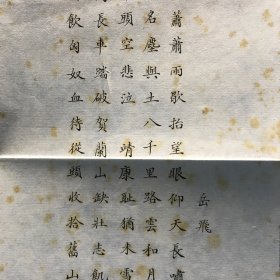 岳飛
蕭蕭雨歇抬望眼仰天長嘯
名塵與土八千里路雲和月
頭空悲泣 靖康恥猶未雪
長車踏破賀蘭山缺壯志飢
飲匈奴血待從頭收拾舊山